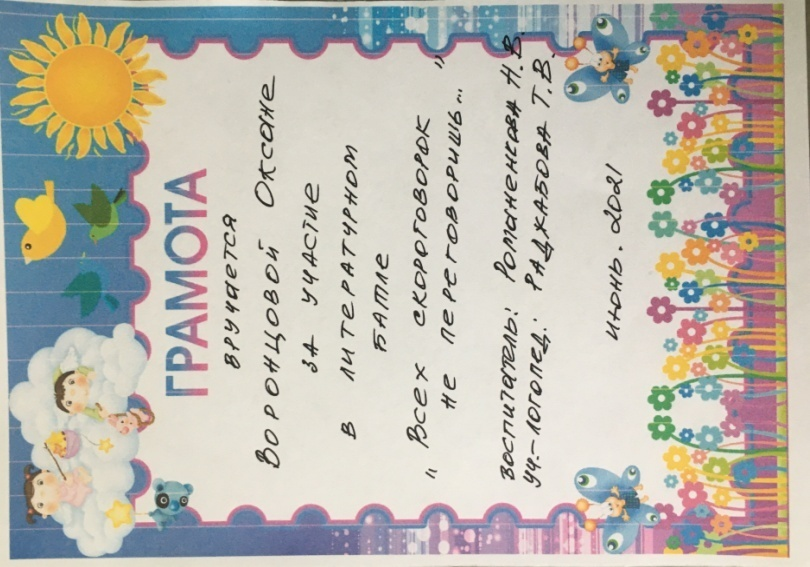 ГРАМОТА
вручается
Воронцовой Оксане
за участие
в литературном
батле
"Всех скороговорок
не переговоришь..."
воспитатель: Романенкова Н.В.
уч.-логопед: Раджабова Т.В.
июнь. 2021